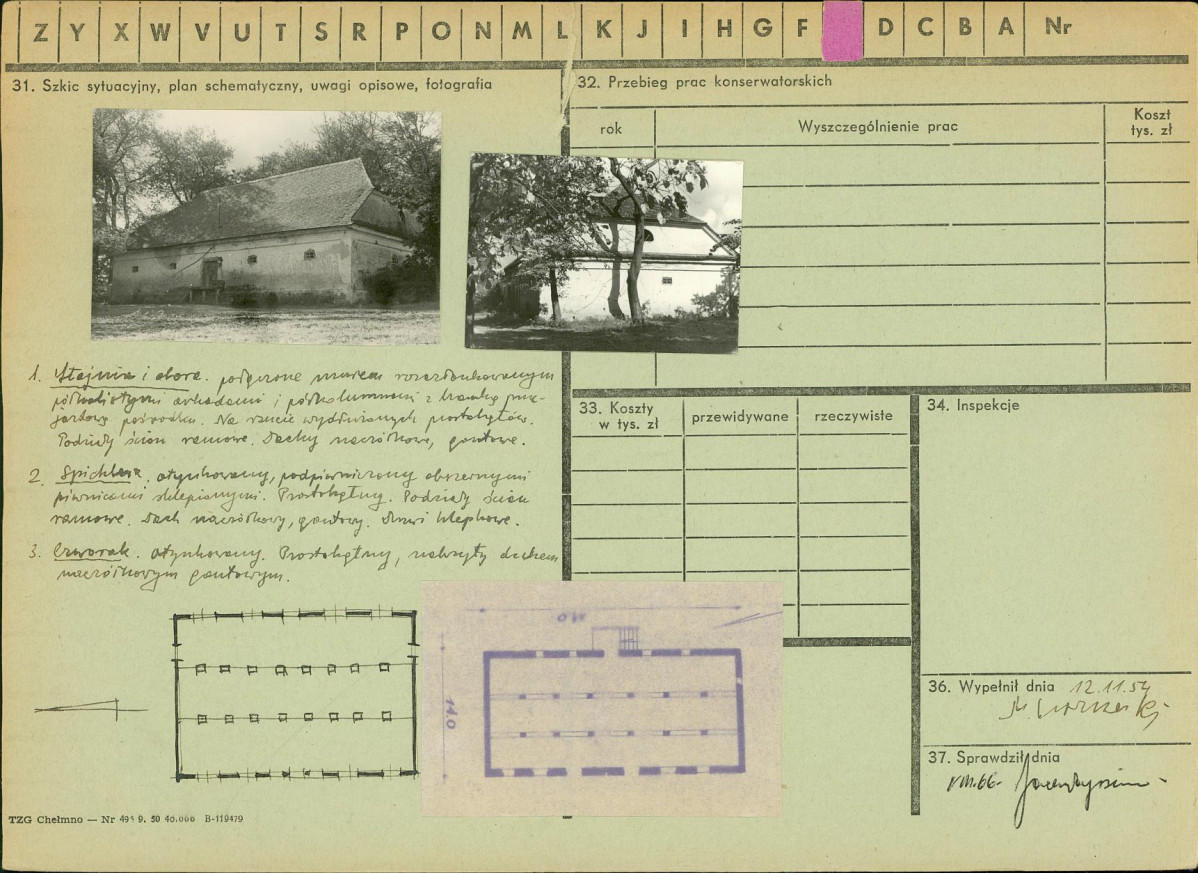 Z Y X W V U T S R P O N M L K J I H G F D C B A Nr
31. Szkic sytuacyjny, plan schematyczny, uwagi opisowe, fotografia
32. Przebieg prac konserwatorskich
rok
Wyszczególnienie prac
Koszt
tys. zł
1. Stajnia i obora. połączone murem rozczłonkowanym
półkolistymi arkadami i półkolumnami z bramką
pośrodku. Na rzucie wydłużonych prostokątów.
Podziały ścian ramowe. Dachy naczółkowe, gontowe.
2. Spichlerz. otynkowany, podpiwniczony obszernymi
piwnicami sklepionymi. Prostokątny. Podziały ścian
ramowe. Dach naczółkowy, gontowy. Drzwi klepkowe.
3. Czworak. otynkowany. Prostokątny, nakryty dachem
naczółkowym gontowym.
33. Koszty
w tys. zł
przewidywane
rzeczywiste
34. Inspekcje
14.0
36. Wypełnił dnia 12.11.54
37. Sprawdził dnia
VIII.66.
TZG Chełmno — Nr 495 9. 50 40.000 B-119479